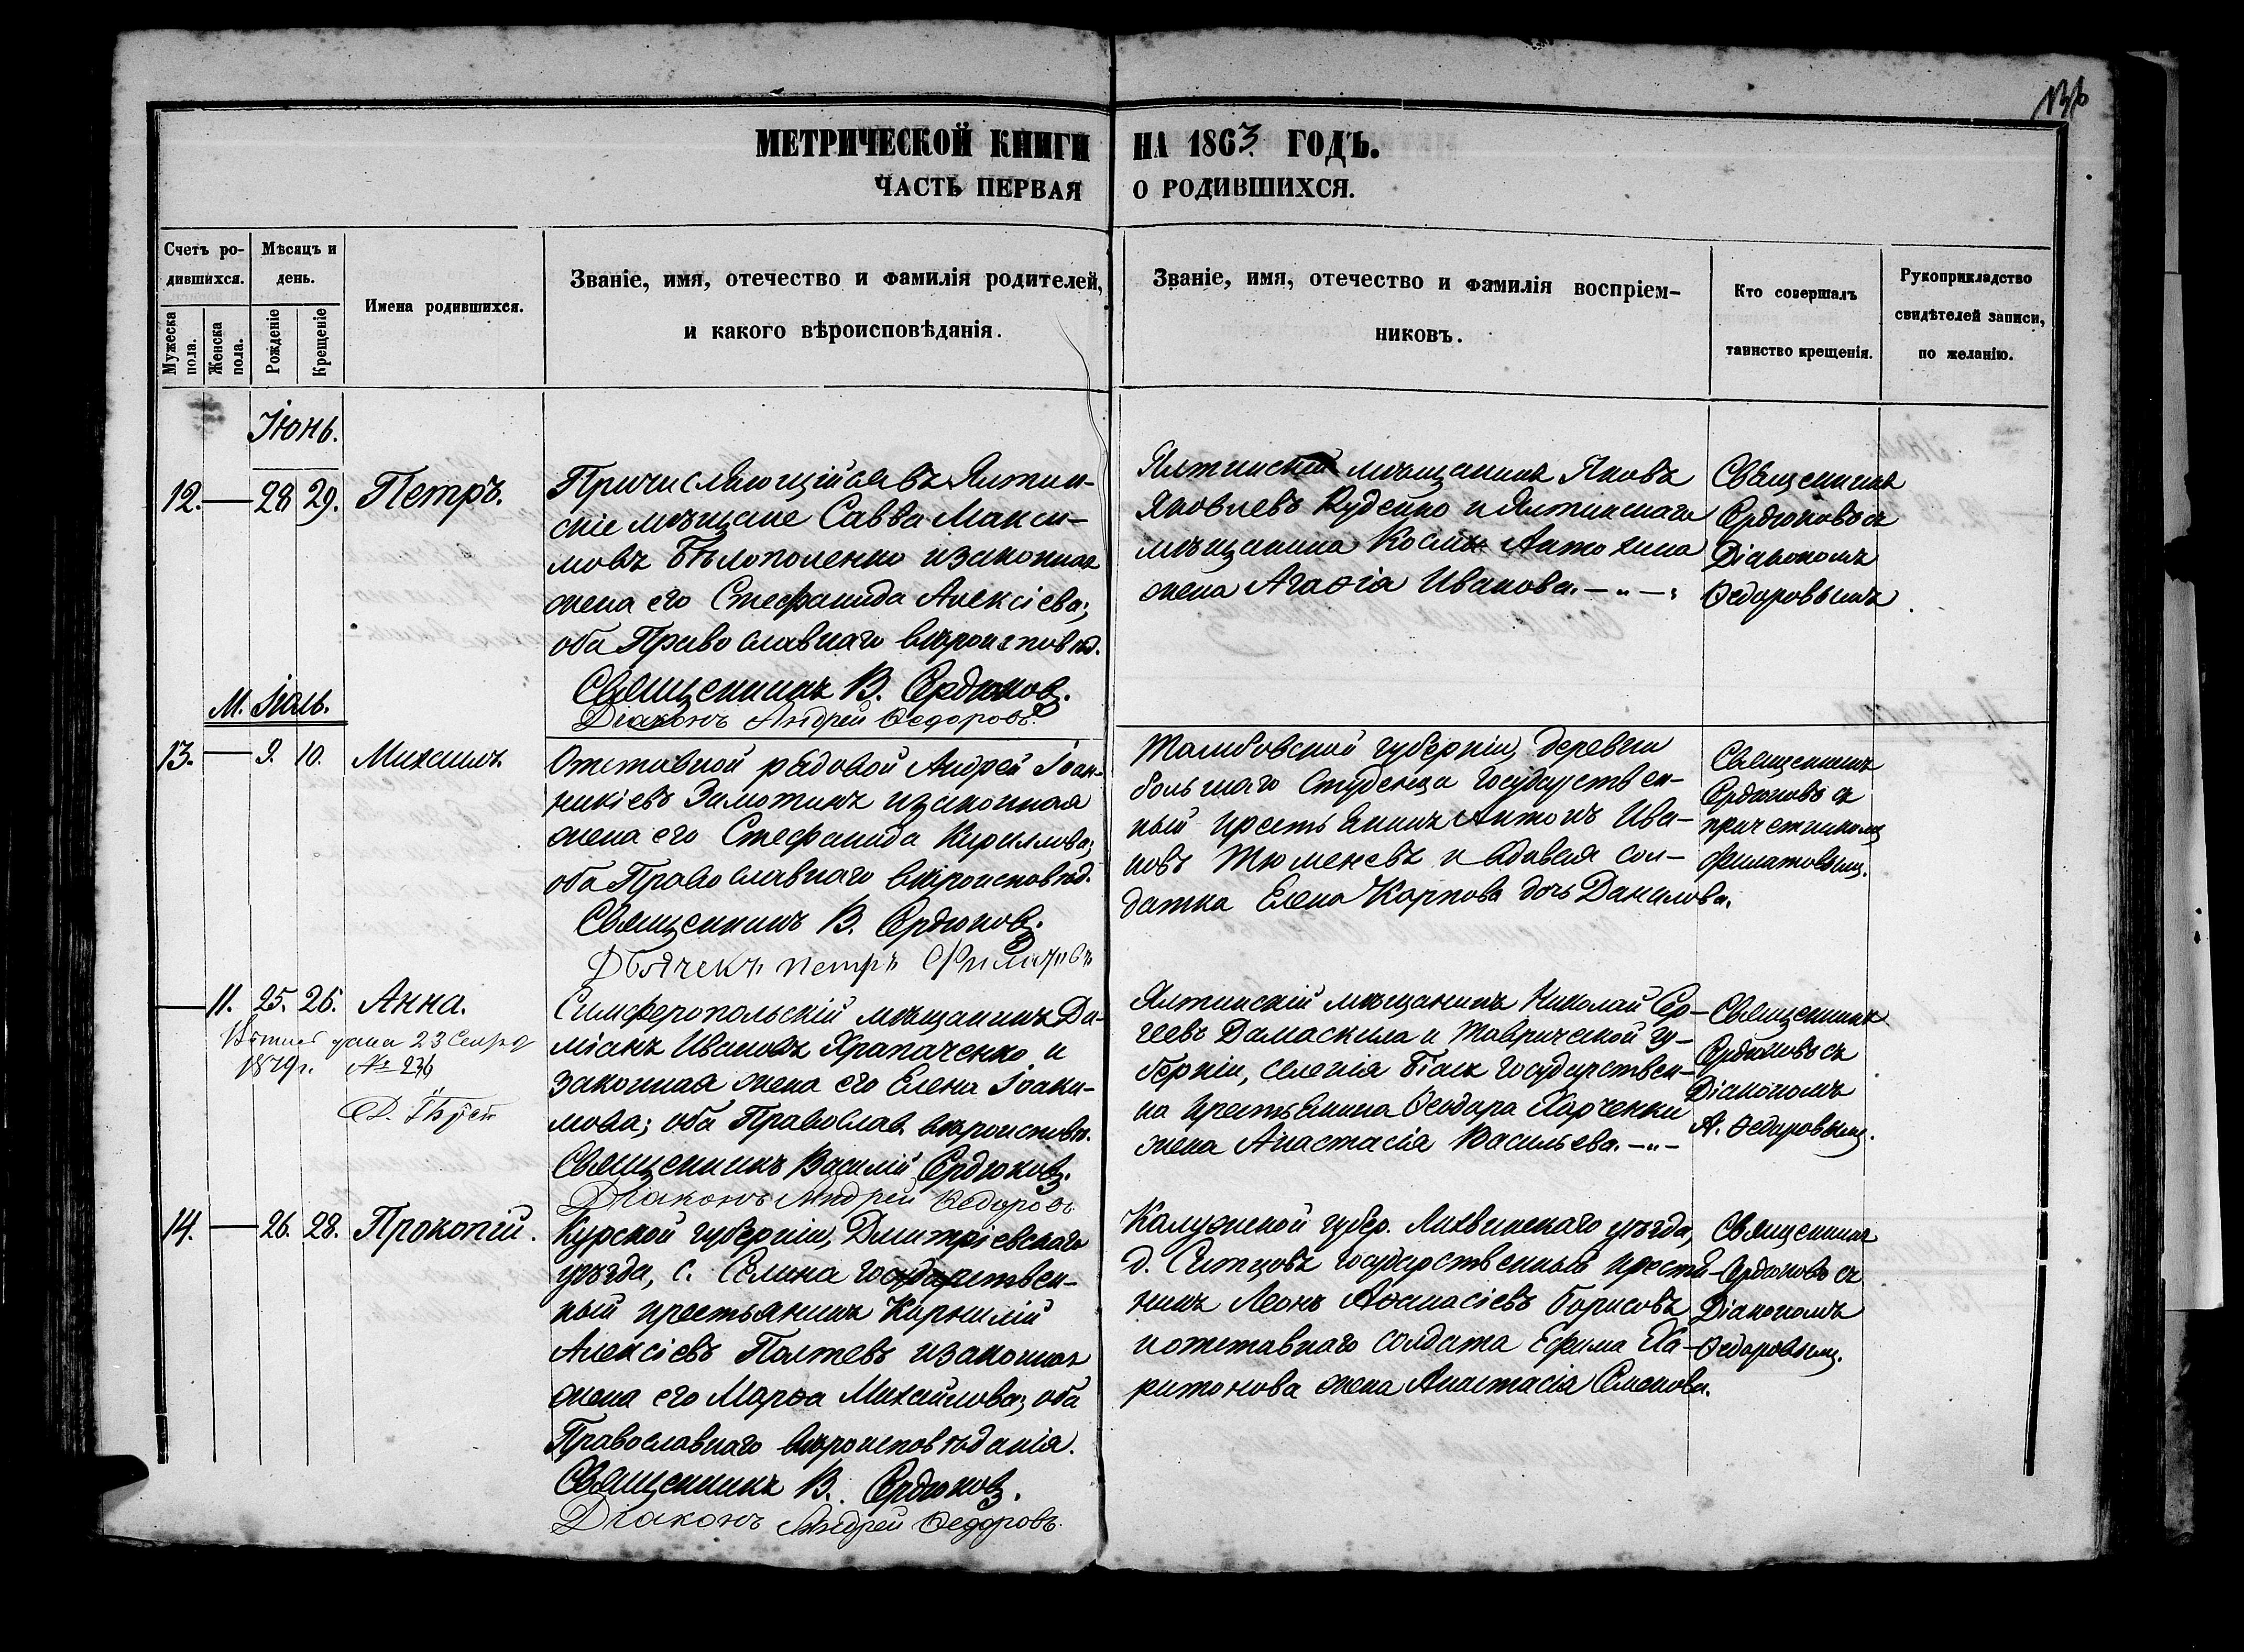 136
МЕТРИЧЕСКОЙ КНИГИ НА 1863 ГОДЪ.
ЧАСТЬ ПЕРВАЯ О РОДИВШИХСЯ.
Счетъ ро-
дившихся.
Мужеска пола.
Женска пола.
Мѣсяцъ и
день.
Рожденіе
Крещеніе
Имена родившихся.
Званіе, имя, отечество и фамилія родителей,
и какого вѣроисповѣданія.
Званіе, имя, отечество и фамилія воспріем-
никовъ.
Кто совершалъ
таинство крещенія.
Рукоприкладство
свидѣтелей записи,
по желанію.
Іюнь.
12. — 28 29. Петръ.
Причисляющійся въ Ялтин-
скіе мѣщане Савва Макси-
мовъ Бѣлополенко и законная
жена его Стефанида Алексіева;
оба Православнаго вѣроисповѣд.
Священникъ В. Сердюковъ.
Діаконъ Андрей Ѳедоровъ.
Ялтинскій мѣщанинъ Яковъ
Яковлевъ Руденко и Ялтинскаго
мѣщанина Космы Антохина
жена Агаѳія Иванова. — „ —
Священникъ
Сердюковъ съ
Діакономъ
Ѳедоровымъ
М. Іюль.
13. — 9. 10. Михаилъ
Отставной рядовой Андрей Іоан-
никіевъ Замотинъ и законная
жена его Стефанида Кириллова;
оба Православнаго вѣроисповѣд.
Священникъ В. Сердюковъ.
Дьячекъ Петръ Филатовъ
Тамбовской губерніи, деревни
большаго Студенца Государствен-
ный крестьянинъ Антонъ Ива-
новъ Тюменевъ и вдовая сол-
датка Елена Карпова дочь Данилова.
Священникъ
Сердюковъ съ
причетникомъ
Филатовымъ.
— 11. 25. 26. Анна.
дана 23
1879г. № 236
Симферопольскій мѣщанинъ Да-
міанъ Ивановъ Храпаченко и
законная жена его Елена Іоаки-
мова; оба Православ. вѣроисповѣ.
Священникъ Василій Сердюковъ.
Діаконъ Андрей Ѳедоровъ
Ялтинскій мѣщанинъ Николай Сер-
геевъ Дамаскила и Таврической гу-
берніи, селенія Біюк Государствен-
на крестьянина Ѳеодора Харченки
жена Анастасія Васильева. — „ —
Священникъ
Сердюковъ съ
Діакономъ
А. Ѳедоровымъ.
14. — 26. 28. Прокопій.
Курской губерніи, Дмитріевскаго
уѣзда, с. Селина государствен-
ный крестьянинъ Корнилій
Алексіевъ Полтевъ и законная
жена его Марѳа Михайлова; оба
Православнаго вѣроисповѣданія.
Священникъ В. Сердюковъ.
Діаконъ Андрей Ѳедоровъ.
Калужской губер. Лихвинскаго уѣзда,
д. Ситцовъ государственный крестья-
нинъ Леонъ Аѳанасіевъ Борисовъ
и отставнаго солдата Ефима Ха-
ритонова жена Анастасія Семенова.
Священникъ
Сердюковъ съ
Діакономъ
Ѳедоровымъ.